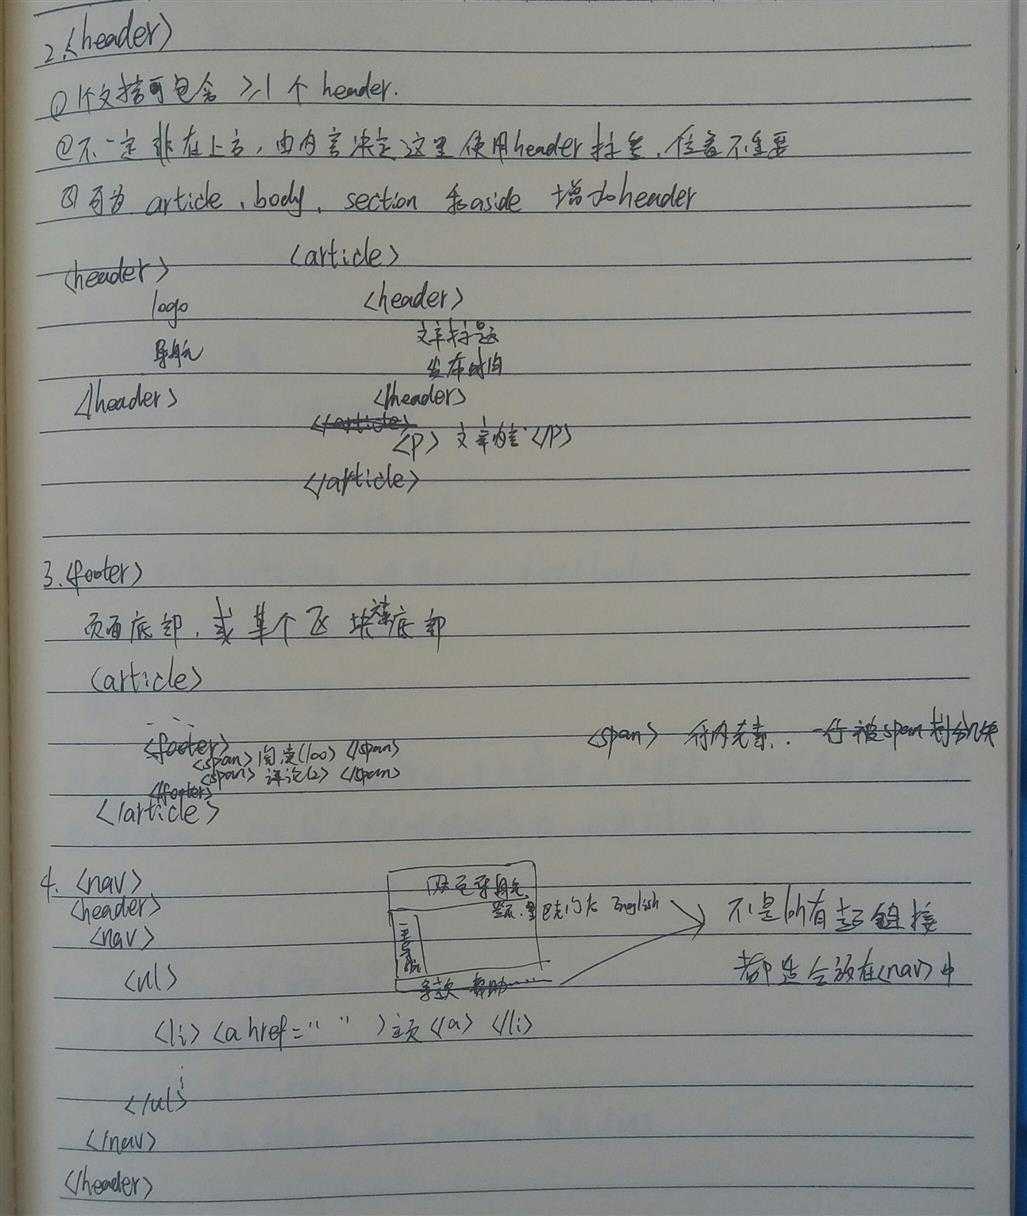 2.<header>
① 1个文档可包含 ≥1 个 header.
②不一定非在上方,由内容决定这里使用header标签,位置不重要
③可为 article、body、section 和aside 增加header
<header>
logo
导航
</header>
<article>
<header>
文章标题
发布时间
</header>
</article>
<p> 文章内容 </p>
</article>
3.<footer>
页面底部,或某个区块底部
<article>
......
<footer>
<span> 阅读(100) </span>
<span> 评论(2) </span>
<footer>
</article>
<span> 行内元素.. 一行被span划分几块
4. <nav>
<header>
<nav>
<ul>
<li> <a href=" " >主页</a> </li>
</ul>
</nav>
</header>
导航
English
帮助……
不是所有超链接
都适合放在<nav>中